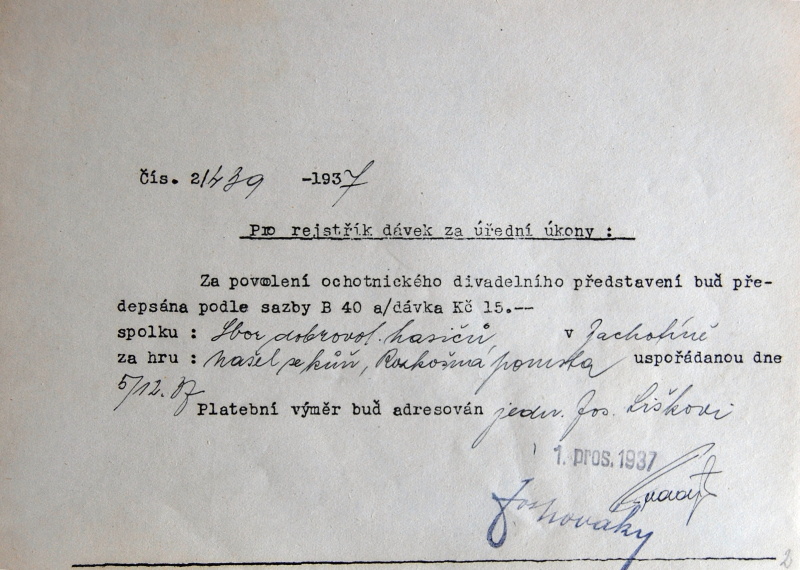 Čís. 2/439 -1937
Pro rejstřík dávek za úřední úkony :
Za povolení ochotnického divadelního představení buď pře-
depsána podle sazby B 40 a/dávka Kč 15.--
spolku : Sbor dobrovol. hasičů, v Zachotíně
za hru : Našel se kůň, Rozkošná pomsta uspořádanou dne
5/12.37
Platební výměr buď adresován jedn. Jos. Liškovi
1. pros. 1937
2